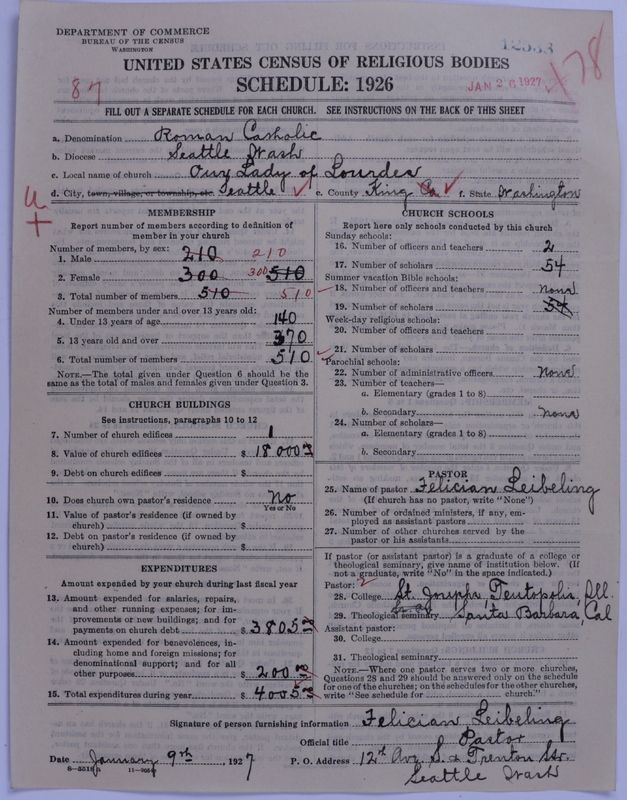 DEPARTMENT OF COMMERCE
BUREAU OF THE CENSUS
WASHINGTON
12533
178
UNITED STATES CENSUS OF RELIGIOUS BODIES
SCHEDULE: 1926
87
JAN 26 1927
FILL OUT A SEPARATE SCHEDULE FOR EACH CHURCH. SEE INSTRUCTIONS ON THE BACK OF THIS SHEET
a. Denomination Roman Catholic
b. Diocese Seattle Wash
c. Local name of church Our Lady of Lourdes
d. City, town, village, or township, etc. Seattle e. County King Co. f. State Washington
MEMBERSHIP
Report number of members according to definition of
member in your church
Number of members, by sex:
1. Male 210 210
2. Female 300 300 510
3. Total number of members 510 510
Number of members under and over 13 years old:
4. Under 13 years of age 140
5. 13 years old and over 370
6. Total number of members 510
NOTE.—The total given under Question 6 should be the
same as the total of males and females given under Question 3.
CHURCH BUILDINGS
See instructions, paragraphs 10 to 12
7. Number of church edifices 1
8. Value of church edifices $ 18000
9. Debt on church edifices $
10. Does church own pastor's residence No
Yes or No
11. Value of pastor's residence (if owned by
church) $
12. Debt on pastor's residence (if owned by
church) $
EXPENDITURES
Amount expended by your church during last fiscal year
13. Amount expended for salaries, repairs,
and other running expenses; for im-
provements or new buildings; and for
payments on church debt $ 3805
14. Amount expended for benevolences, in-
cluding home and foreign missions; for
denominational support; and for all
other purposes $ 200
15. Total expenditures during year $ 4005
CHURCH SCHOOLS
Report here only schools conducted by this church
Sunday schools:
16. Number of officers and teachers 2
17. Number of scholars 54
Summer vacation Bible schools:
18. Number of officers and teachers None
19. Number of scholars 54
Week-day religious schools:
20. Number of officers and teachers
21. Number of scholars
Parochial schools:
22. Number of administrative officers None
23. Number of teachers—
a. Elementary (grades 1 to 8)
b. Secondary None
24. Number of scholars—
a. Elementary (grades 1 to 8)
b. Secondary
PASTOR
25. Name of pastor Felician Leibeling
(If church has no pastor, write "None")
26. Number of ordained ministers, if any, em-
ployed as assistant pastors
27. Number of other churches served by the
pastor or his assistants
If pastor (or assistant pastor) is a graduate of a college or
theological seminary, give name of institution below. (If
not a graduate, write "No" in the space indicated.)
Pastor: 2
28. College St. Josephs, Teutopolis, Ill.
29. Theological seminary Santa Barbara, Cal
Assistant pastor:
30. College
31. Theological seminary
NOTE.—Where one pastor serves two or more churches,
Questions 28 and 29 should be answered only on the schedule
for one of the churches; on the schedules for the other churches,
write "See schedule for church."
Signature of person furnishing information Felician Leibeling
Official title Pastor
Date January 9th, 1927 P. O. Address 12th Ave. S. & Trenton Str.
8—5518 Seattle Wash